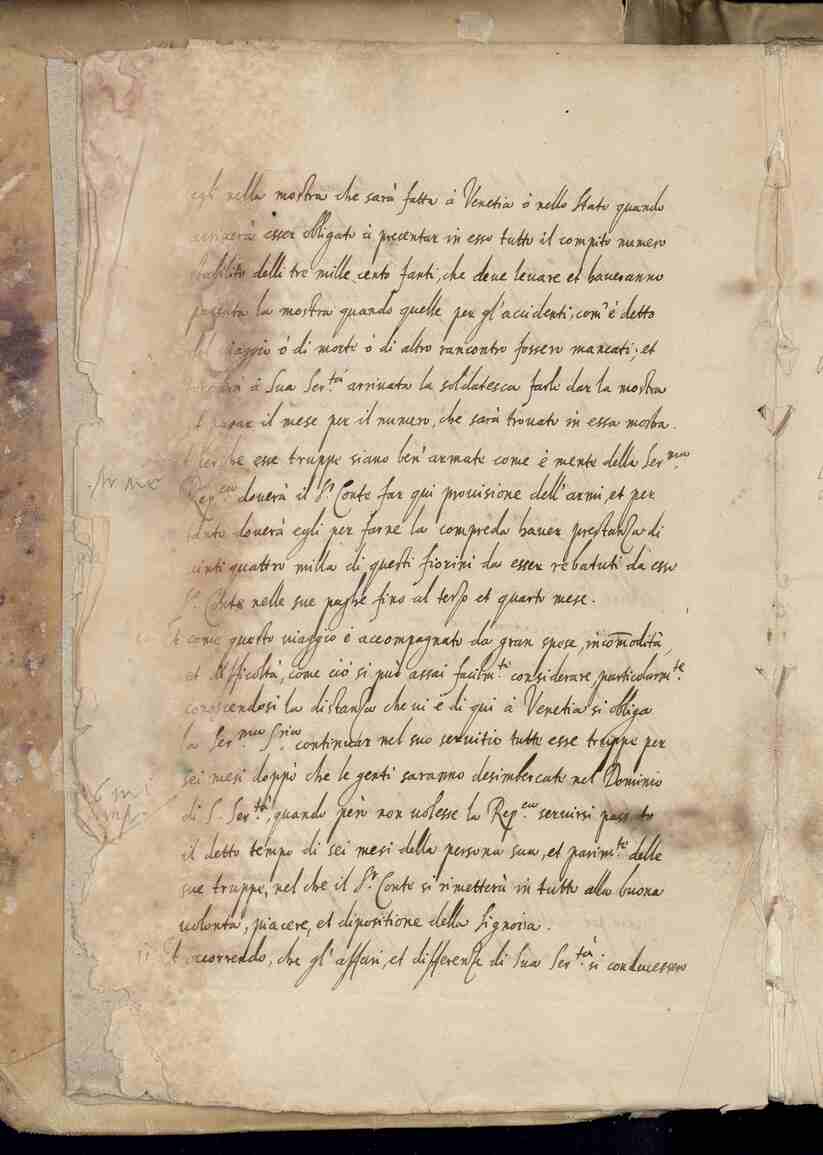 egli nella mostra che sarà fatta à Venetia ò nello Stato quando
arriverà esser obligato à presentar in esso tutto il compito numero
stabilito delli tre mille cento fanti, che deue leuare et haueranno
passata la mostra quando quelle per gl'accidenti, com'è detto
del uiaggio ò di morte ò di altro rancontro fossero mancati, et
à Sua Ser.tà arriuata la soldatesca farle dar la mostra
et pagar il mese per il numero, che sarà trouato in essa mostra.
Et perche esse truppe siano ben' armate come è mente della Ser.ma
Rep.ca douerà il S.r Conte far qui prouisione dell'armi, et per
tanto douerà egli per farne la compreda hauer prestanza di
uinti quattro milla di questi fiorini da esser rebatuti da esso
S.r Conte nelle sue paghe fino al terzo et quarto mese.
Et come questo uiaggio è accompagnato da gran spese, incom̄odità,
et difficoltà, come ciò si può assai facilm.te considerare, particolarm.te
conoscendosi la distanza che ui è di qui à Venetia si obliga
la Ser.ma Sria. continuar nel suo seruitio tutte esse truppe per
sei mesi doppò che le genti saranno desimbercate nel Dominio
di S. Ser.tà, quando però non uolesse la Rep.ca seruirsi passato
il detto tempo di sei mesi della persona sua, et parim.te delle
sue truppe, nel che il S.r Conte si rimetterà in tutto alla buona
uolontà, piacere, et dipositione della Signoria.
Et occorrendo, che gl'affari, et differenze di Sua Ser.tà si conducessero